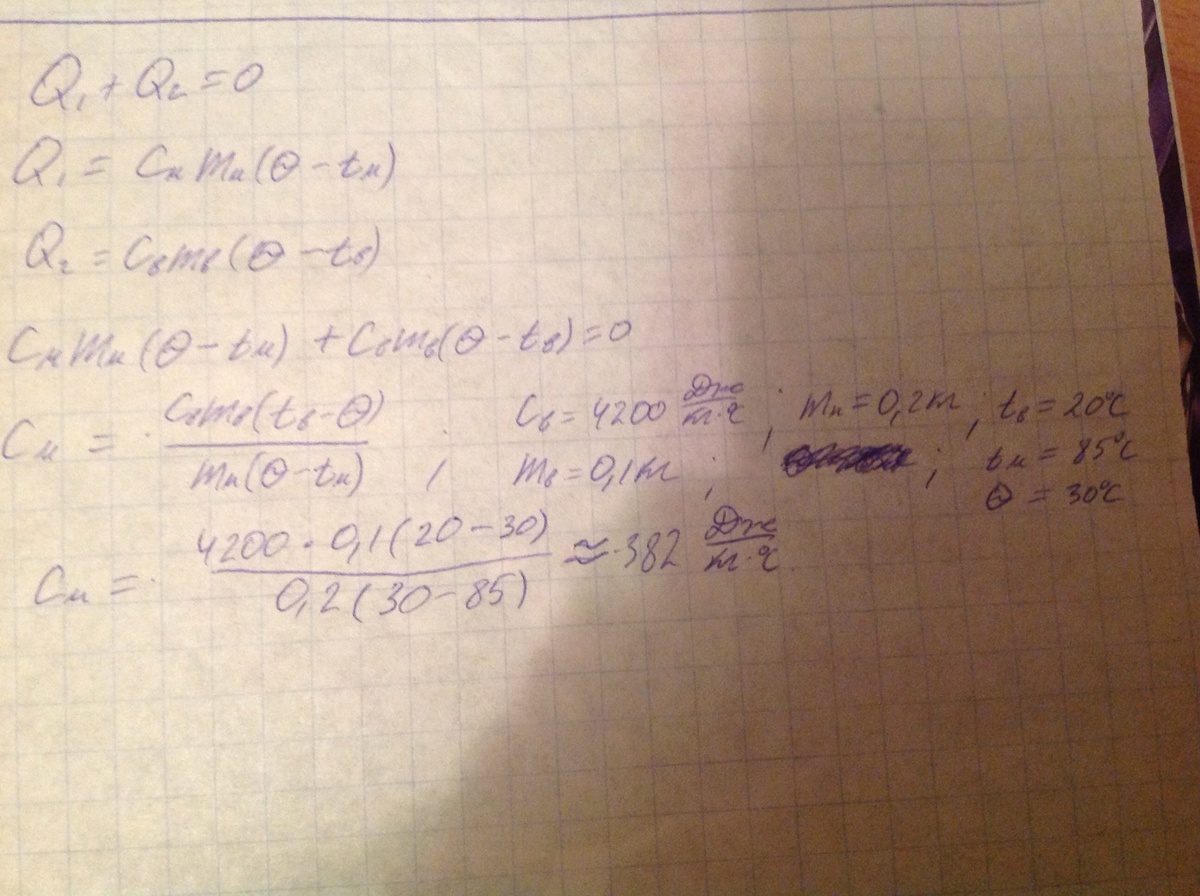 Q₁ + Q₂ = 0
Q₁ = Cм mм (Θ − tм)
Q₂ = Cв mв (Θ − tв)
Cм mм (Θ − tм) + Cв mв (Θ − tв) = 0
Cм = Cв mв (tв − Θ) / mм (Θ − tм) , Cв = 4200 Дж/кг·°C ; mм = 0,2 кг , tв = 20°C
mв = 0,1 кг ; ; tм = 85°C
Θ = 30°C
Cм = 4200 · 0,1 (20 − 30) / 0,2 (30 − 85) ≈ 382 Дж/кг·°C